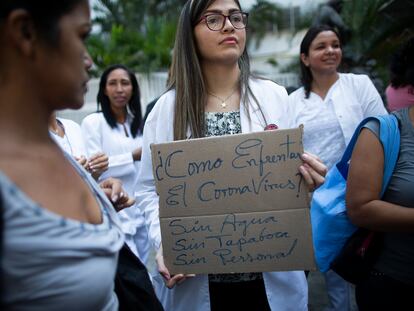 ¿Como Enfrentar
El CoronaVirus?
Sin Agua
Sin Tapaboca
Sin Personal